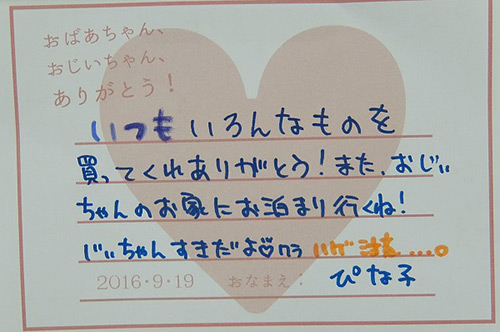 おばあちゃん、
おじいちゃん、
ありがとう！
いつも いろんなものを
買ってくれありがとう！また、おじい
ちゃんのお家にお泊まり行くね！
じいちゃんすきだよ♡ククラ
2016・9・19 おなまえ： ぴな子